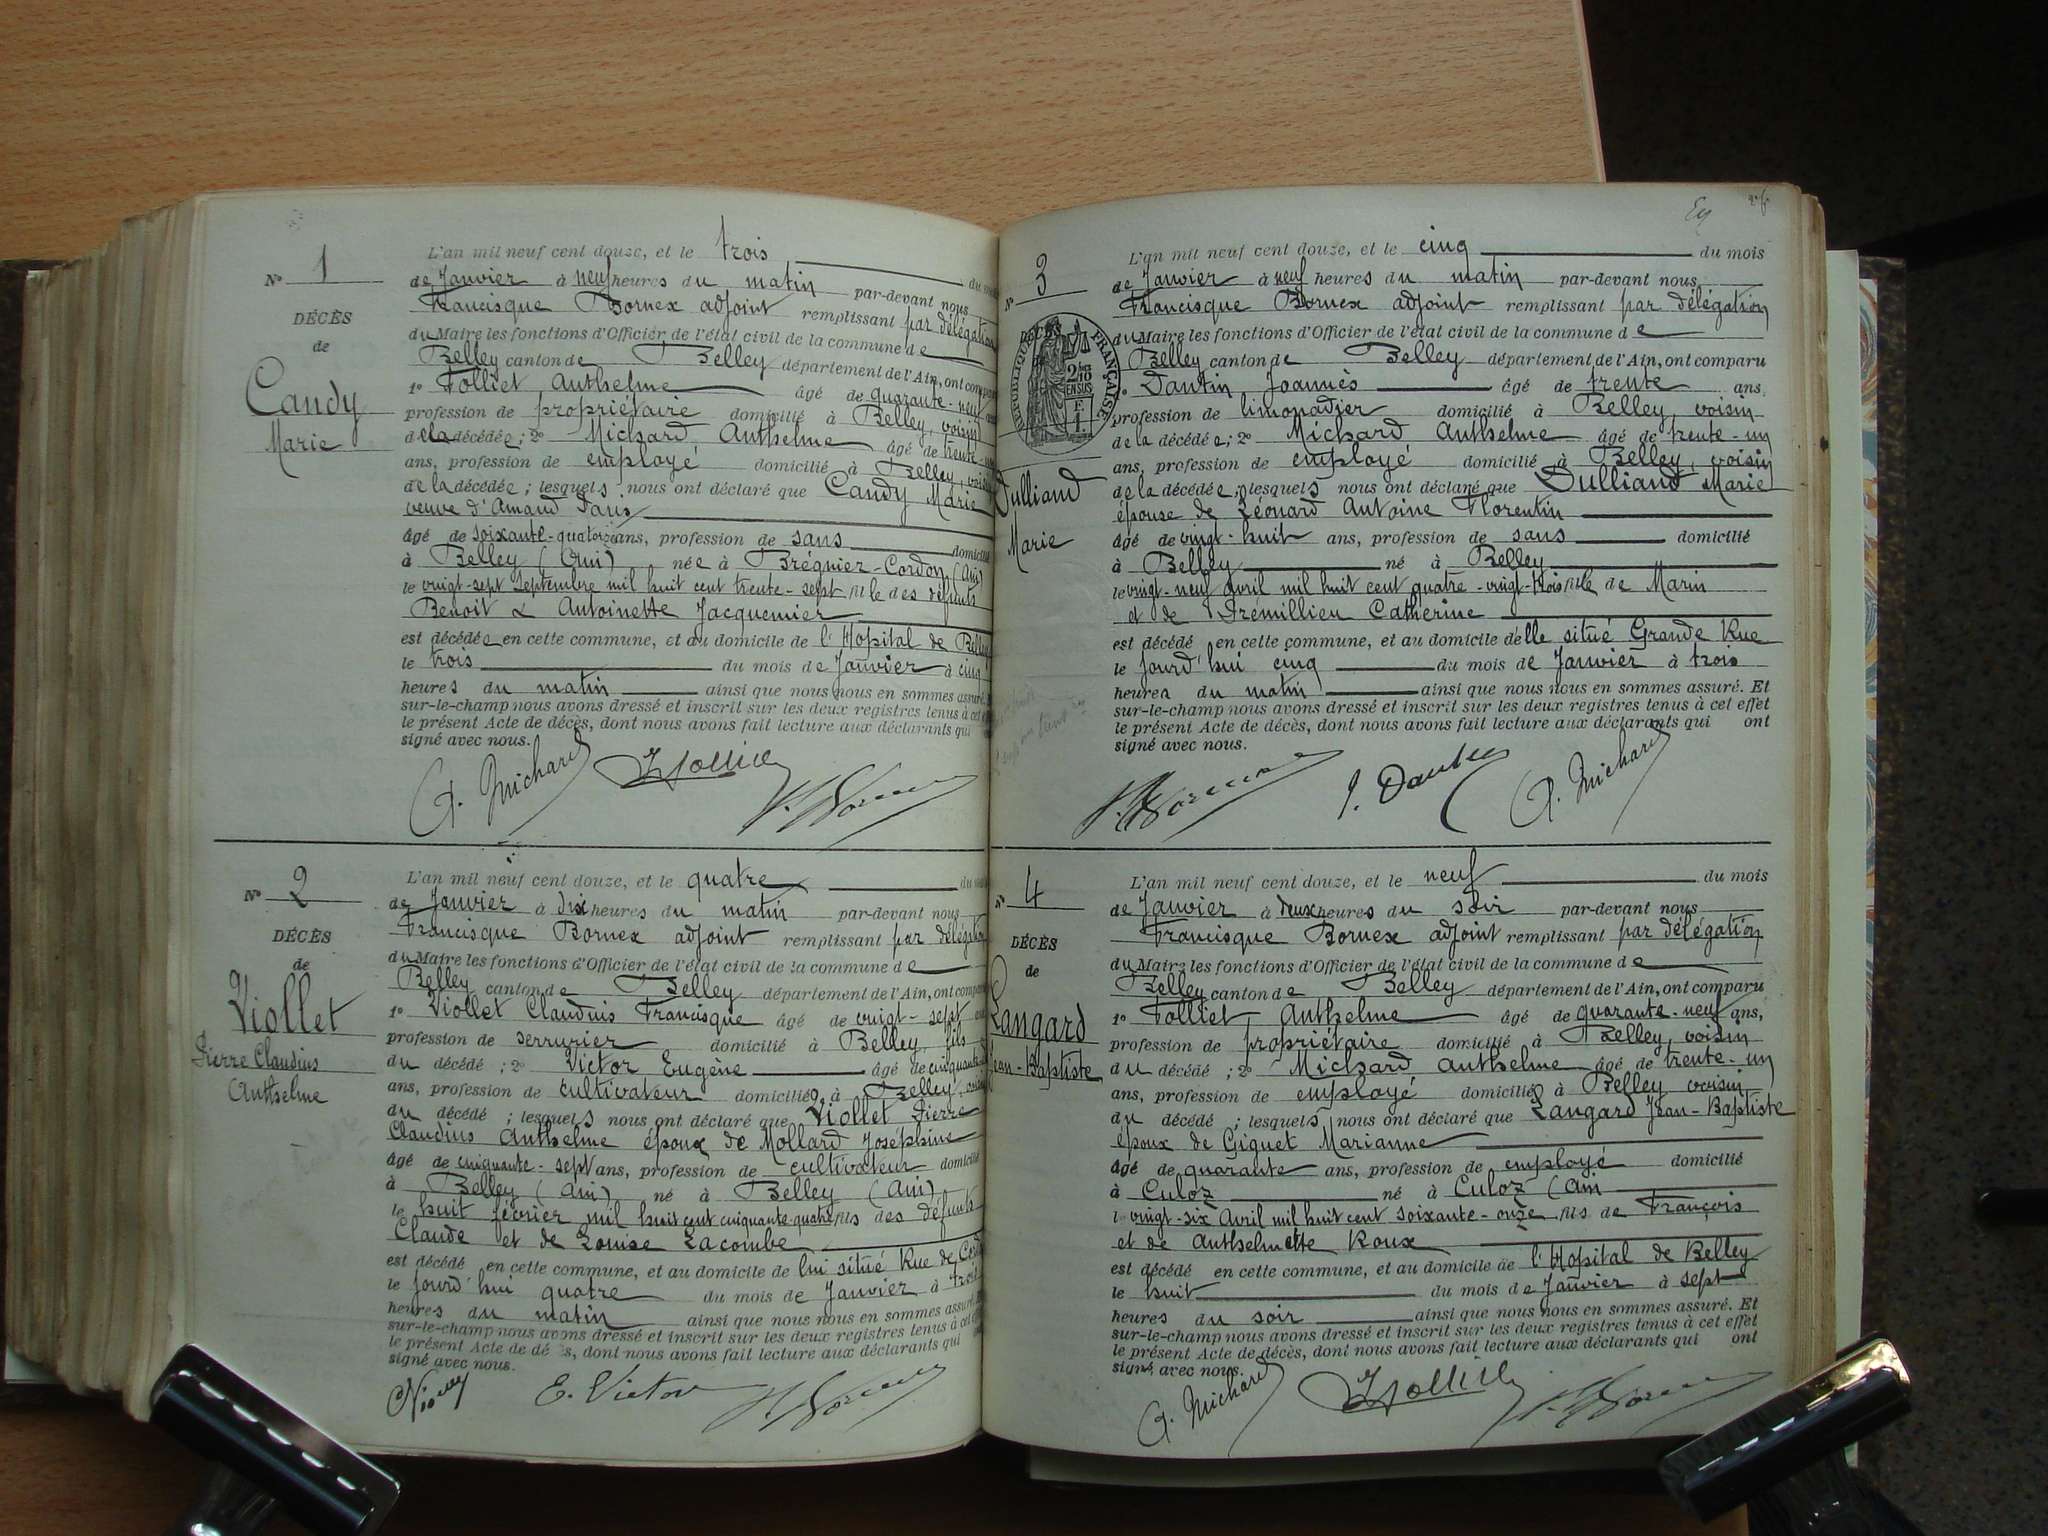 N° 1
DÉCÈS
de
Candy
Marie
L'an mil neuf cent douze, et le trois du
de Janvier à neuf heures du matin par-devant nous
Francisque Bornex adjoint remplissant par délégation
du Maire les fonctions d'Officier de l'état civil de la commune de
Belley canton de Belley département de l'Ain, ont comparu
1° Folliet Anthelme âgé de quarante-neuf ans
profession de propriétaire domicilié à Belley, voisin
de la décédée; 2° Michard Anthelme âgé de trente-un
ans, profession de employé domicilié à Belley, voisin
de la décédée; lesquels nous ont déclaré que Candy Marie
veuve d'Amand
âgé de soixante-quatorze ans, profession de sans domicilié
à Belley (Ain) née à Brégnier-Cordon (Ain)
le vingt-sept septembre mil huit cent trente-sept fille des défunts
Benoit & Antoinette Jacquemier
est décédée en cette commune, et au domicile de l'Hopital de Belley
le trois du mois de Janvier à cinq
heures du matin ainsi que nous nous en sommes assuré.
sur-le-champ nous avons dressé et inscrit sur les deux registres tenus à cet
le présent Acte de décès, dont nous avons fait lecture aux déclarants qui
signé avec nous.
A. Michard
N° 2
DÉCÈS
de
Viollet
Pierre Claudius
Anthelme
L'an mil neuf cent douze, et le quatre du
de Janvier à dix heures du matin par-devant nous
Francisque Bornex adjoint remplissant par délégation
du Maire les fonctions d'Officier de l'état civil de la commune de
Belley canton de Belley département de l'Ain, ont comparu
1° Viollet Claudius Francisque âgé de vingt-sept ans
profession de serrurier domicilié à Belley, fils
du décédé; 2° Victor Eugène âgé de cinquante
ans, profession de cultivateur domiciliés à Belley, voisin
du décédé; lesquels nous ont déclaré que Viollet Pierre
Claudius Anthelme époux de Mollard Joséphine
âgé de cinquante-sept ans, profession de cultivateur domicilié
à Belley (Ain) né à Belley (Ain)
le huit février mil huit cent cinquante-quatre fils des défunts
Claude et de Louise Lacombe
est décédé en cette commune, et au domicile de lui situé Rue de
le jourd'hui quatre du mois de Janvier à trois
heures du matin ainsi que nous nous en sommes assuré.
sur-le-champ nous avons dressé et inscrit sur les deux registres tenus à cet
le présent Acte de décès, dont nous avons fait lecture aux déclarants qui
signé avec nous.
E. Victor
N° 3
DÉCÈS
RÉPUBLIQUE FRANÇAISE
2/10
EN SUS
F.
1.
Dulliand
Marie
L'an mil neuf cent douze, et le cinq du mois
de Janvier à neuf heures du matin par-devant nous
Francisque Bornex adjoint remplissant par délégation
du Maire les fonctions d'Officier de l'état civil de la commune de
Belley canton de Belley département de l'Ain, ont comparu
1° Dantin Joannès âgé de trente ans
profession de limonadier domicilié à Belley, voisin
de la décédée; 2° Michard Anthelme âgé de trente-un
ans, profession de employé domicilié à Belley, voisin
de la décédée; lesquels nous ont déclaré que Dulliand Marie
épouse de Léonard Antoine Florentin
âgé de vingt-huit ans, profession de sans domicilié
à Belley né à Belley
le vingt-neuf avril mil huit cent quatre-vingt-trois fille de Marin
et de Trémillieu Catherine
est décédé en cette commune, et au domicile d'elle situé Grande Rue
le jourd'hui cinq du mois de Janvier à trois
heures du matin ainsi que nous nous en sommes assuré. Et
sur-le-champ nous avons dressé et inscrit sur les deux registres tenus à cet effet
le présent Acte de décès, dont nous avons fait lecture aux déclarants qui ont
signé avec nous.
A. Michard
N° 4
DÉCÈS
de
Langard
Jean-Baptiste
L'an mil neuf cent douze, et le neuf du mois
de Janvier à deux heures du soir par-devant nous
Francisque Bornex adjoint remplissant par délégation
du Maire les fonctions d'Officier de l'état civil de la commune de
Belley canton de Belley département de l'Ain, ont comparu
1° Folliet Anthelme âgé de quarante-neuf ans,
profession de propriétaire domicilié à Belley, voisin
du décédé; 2° Michard Anthelme âgé de trente-un
ans, profession de employé domicilié à Belley voisin
du décédé; lesquels nous ont déclaré que Langard Jean-Baptiste
époux de Giguet Marianne
âgé de quarante ans, profession de employé domicilié
à Culoz né à Culoz (Ain
le vingt-six Avril mil huit cent soixante-onze fils de François
et de Anthelmette Roux
est décédé en cette commune, et au domicile de l'Hopital de Belley
le huit du mois de Janvier à sept
heures du soir ainsi que nous nous en sommes assuré. Et
sur-le-champ nous avons dressé et inscrit sur les deux registres tenus à cet effet
le présent Acte de décès, dont nous avons fait lecture aux déclarants qui ont
signé avec nous.
A. Michard